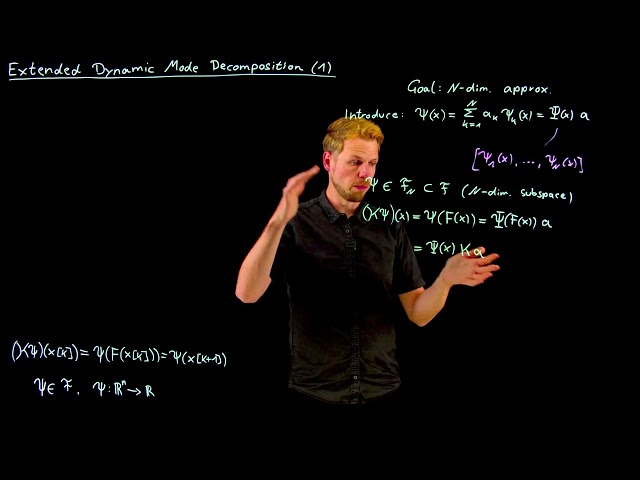 Extended Dynamic Mode Decomposition (1)
Goal: N-dim. approx.
Introduce: Ψ(x) = Σ_{k=1}^{N} a_k Ψ_k(x) = Ψ(x) a
[Ψ_1(x), ..., Ψ_N(x)]
Ψ ∈ F_N ⊂ F (N-dim. subspace)
(KΨ)(x) = Ψ(F(x)) = Ψ(F(x)) a
= Ψ(x) K a
(KΨ)(x[k]) = Ψ(F(x[k])) = Ψ(x[k+1])
Ψ ∈ F, Ψ: ℝⁿ → ℝ